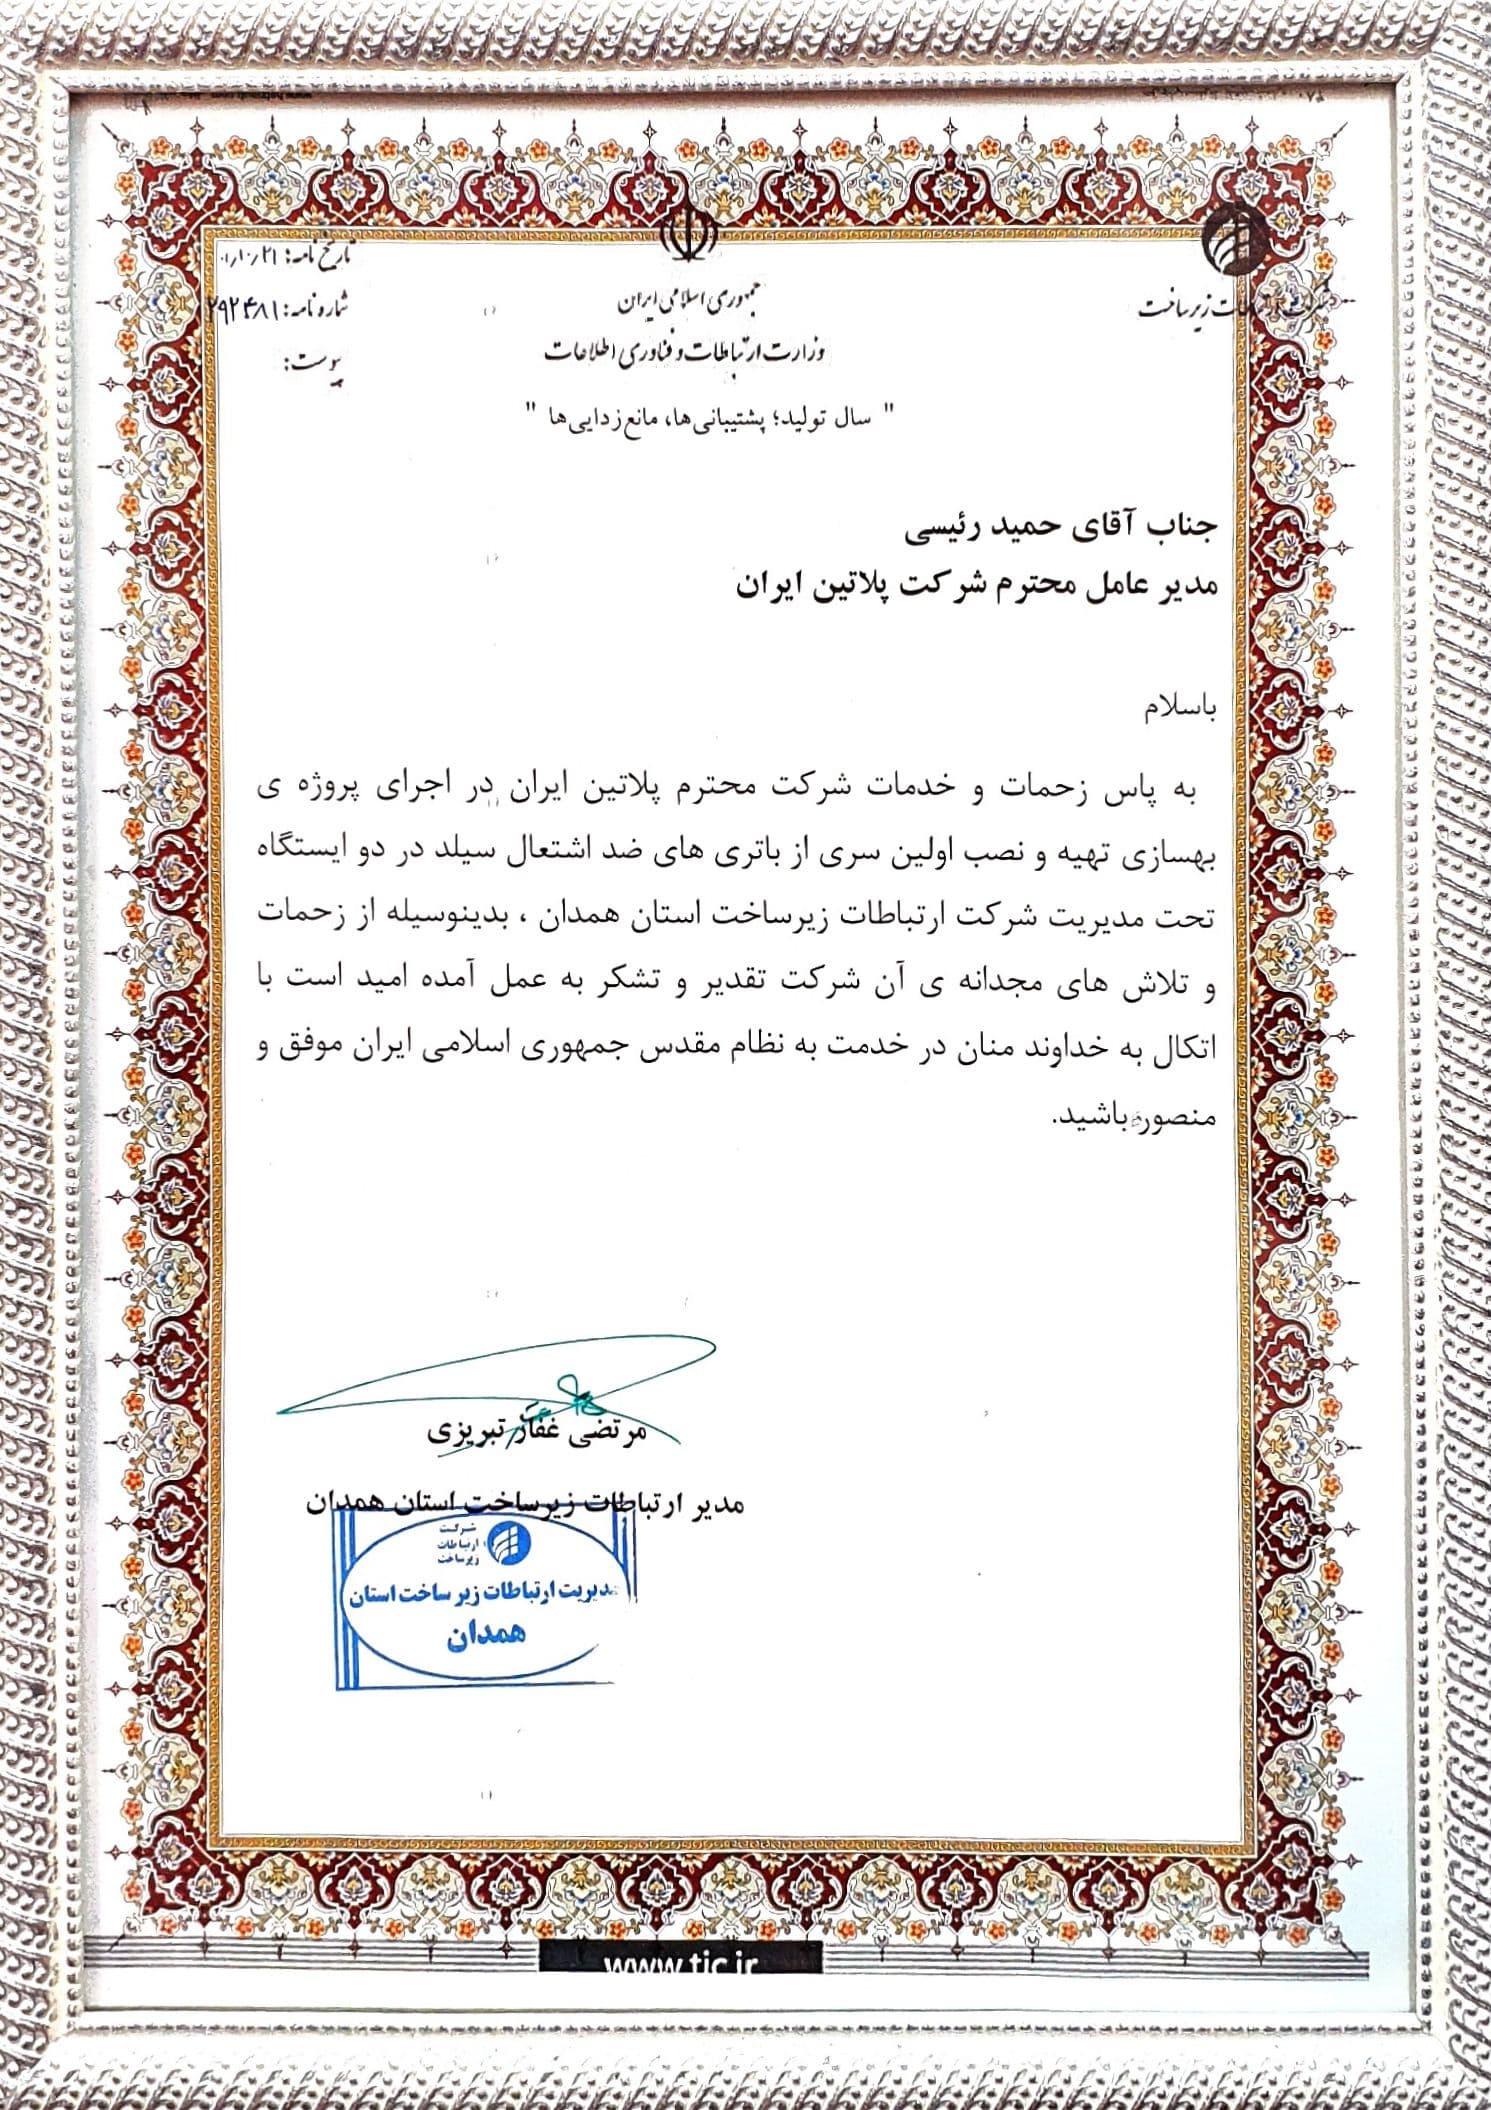 جمهوری اسلامی ایران
وزارت ارتباطات و فناوری اطلاعات
شرکت ارتباطات زیرساخت
تاریخ نامه: ۰۱/۱۰/۲۱
شماره نامه: ۲۹۲۴۸۱
پیوست:
" سال تولید؛ پشتیبانی‌ها، مانع‌زدایی‌ها "
جناب آقای حمید رئیسی
مدیر عامل محترم شرکت پلاتین ایران
باسلام
به پاس زحمات و خدمات شرکت محترم پلاتین ایران در اجرای پروژه ی
بهسازی تهیه و نصب اولین سری از باتری های ضد اشتعال سیلد در دو ایستگاه
تحت مدیریت شرکت ارتباطات زیرساخت استان همدان ، بدینوسیله از زحمات
و تلاش های مجدانه ی آن شرکت تقدیر و تشکر به عمل آمده امید است با
اتکال به خداوند منان در خدمت به نظام مقدس جمهوری اسلامی ایران موفق و
منصور باشید.
مرتضی غفار تبریزی
مدیر ارتباطات زیرساخت استان همدان
شرکت
ارتباطات
زیرساخت
مدیریت ارتباطات زیر ساخت استان
همدان
www.tic.ir